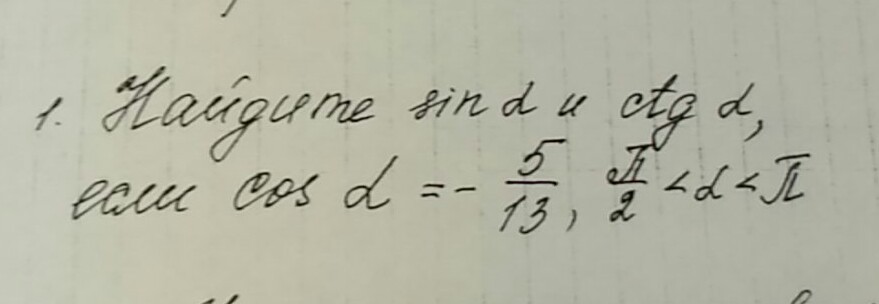 1. Найдите sin α и ctg α,
если cos α = - 5/13, π/2 < α < π